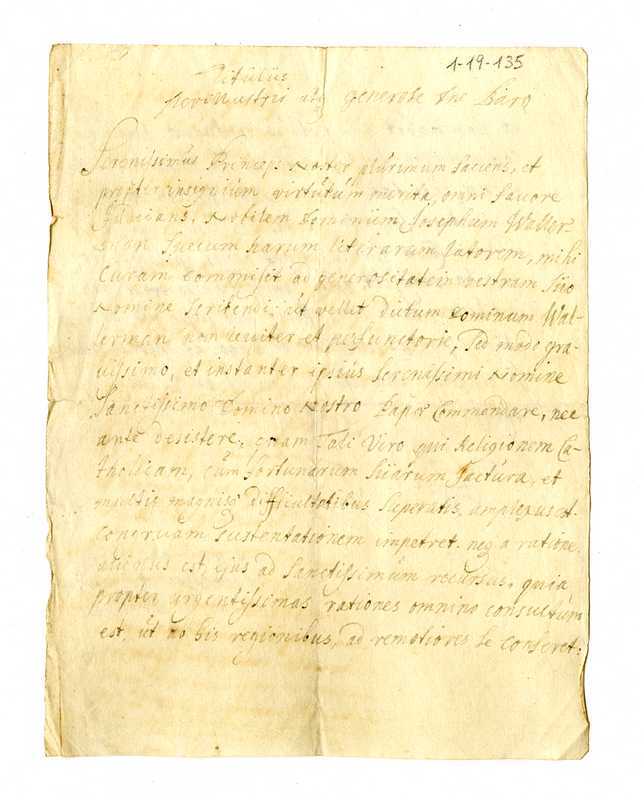 1-19-135
Titulüs
perillustris atq generose Dne Baro
Serenissimüs Princeps Noster plürimum faciens, et
propter insigniüm virtutüm merita, omni favore
Nobilem Dominüm Josephum Waller
man Suecum harum literarum latorem, mihi
Curam commisit ad generositatem vestram Süo
Nomine scribendi: üt vellet dictum Dominum Wal-
lerman non leviter et perfunctorie, sed modo gra-
uissimo, et instanter ipsiüs Serenissimi Nomine
Sanctissimo Domino Nostro Papæ Commendare, nec
ante desistere, quam Tali Viro qui Religionem Ca-
tholicam, cüm fortunarum süarum Jactura, et
multis magnisq difficultatibus superatis amplexus est.
Congruam sustentationem impetret. neq a ratione
alienus est, ejus ad Sanctissimüm recursüs, quia
propter urgentissimas rationes omnino consultüm
est, üt ab his regionibus, ad remotiores se conferet: